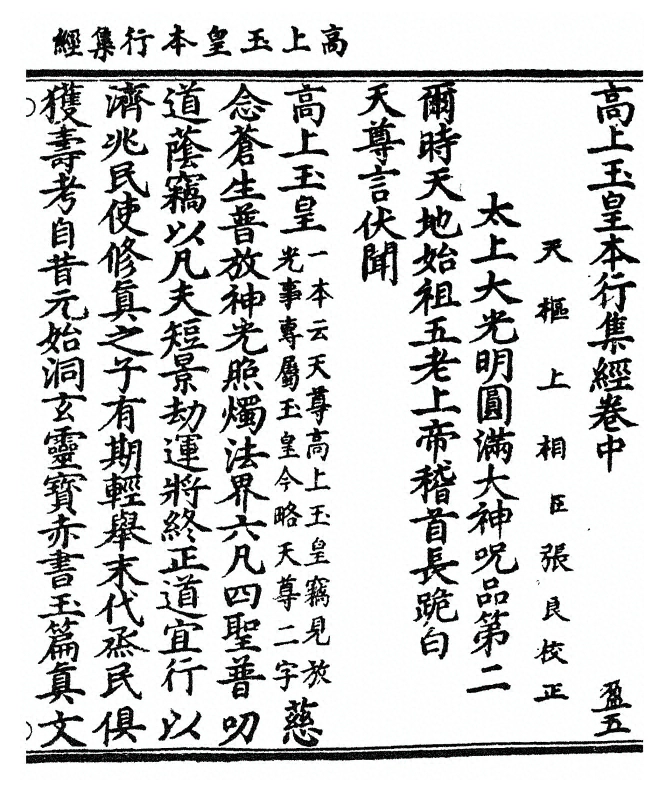 高上玉皇本行集經
高上玉皇本行集經卷中
盈五
天樞上相臣張良校正
太上大光明圓滿大神呪品第二
爾時天地始祖五老上帝稽首長跪白
天尊言伏聞
高上玉皇
一本云天尊高上玉皇竊見放
光事專屬玉皇今略天尊二字
慈
念蒼生普放神光照燭法界六凡四聖普叨
道蔭竊以凡夫短景劫運將終正道宜行以
濟兆民使修真之子有期輕舉末代烝民俱
獲壽考自昔元始洞玄靈寶赤書玉篇真文